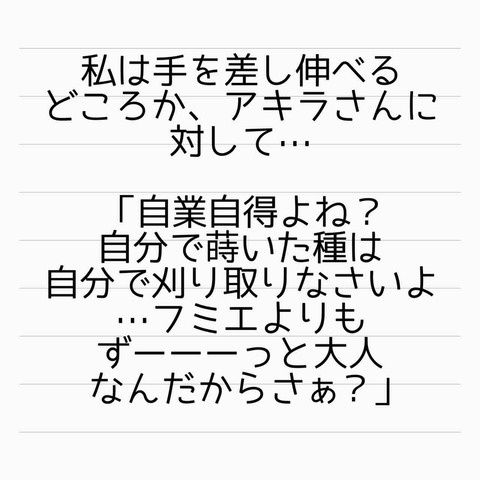 私は手を差し伸べる
どころか、アキラさんに
対して…
「自業自得よね？
自分で蒔いた種は
自分で刈り取りなさいよ
…フミエよりも
ずーーーっと大人
なんだからさぁ？」